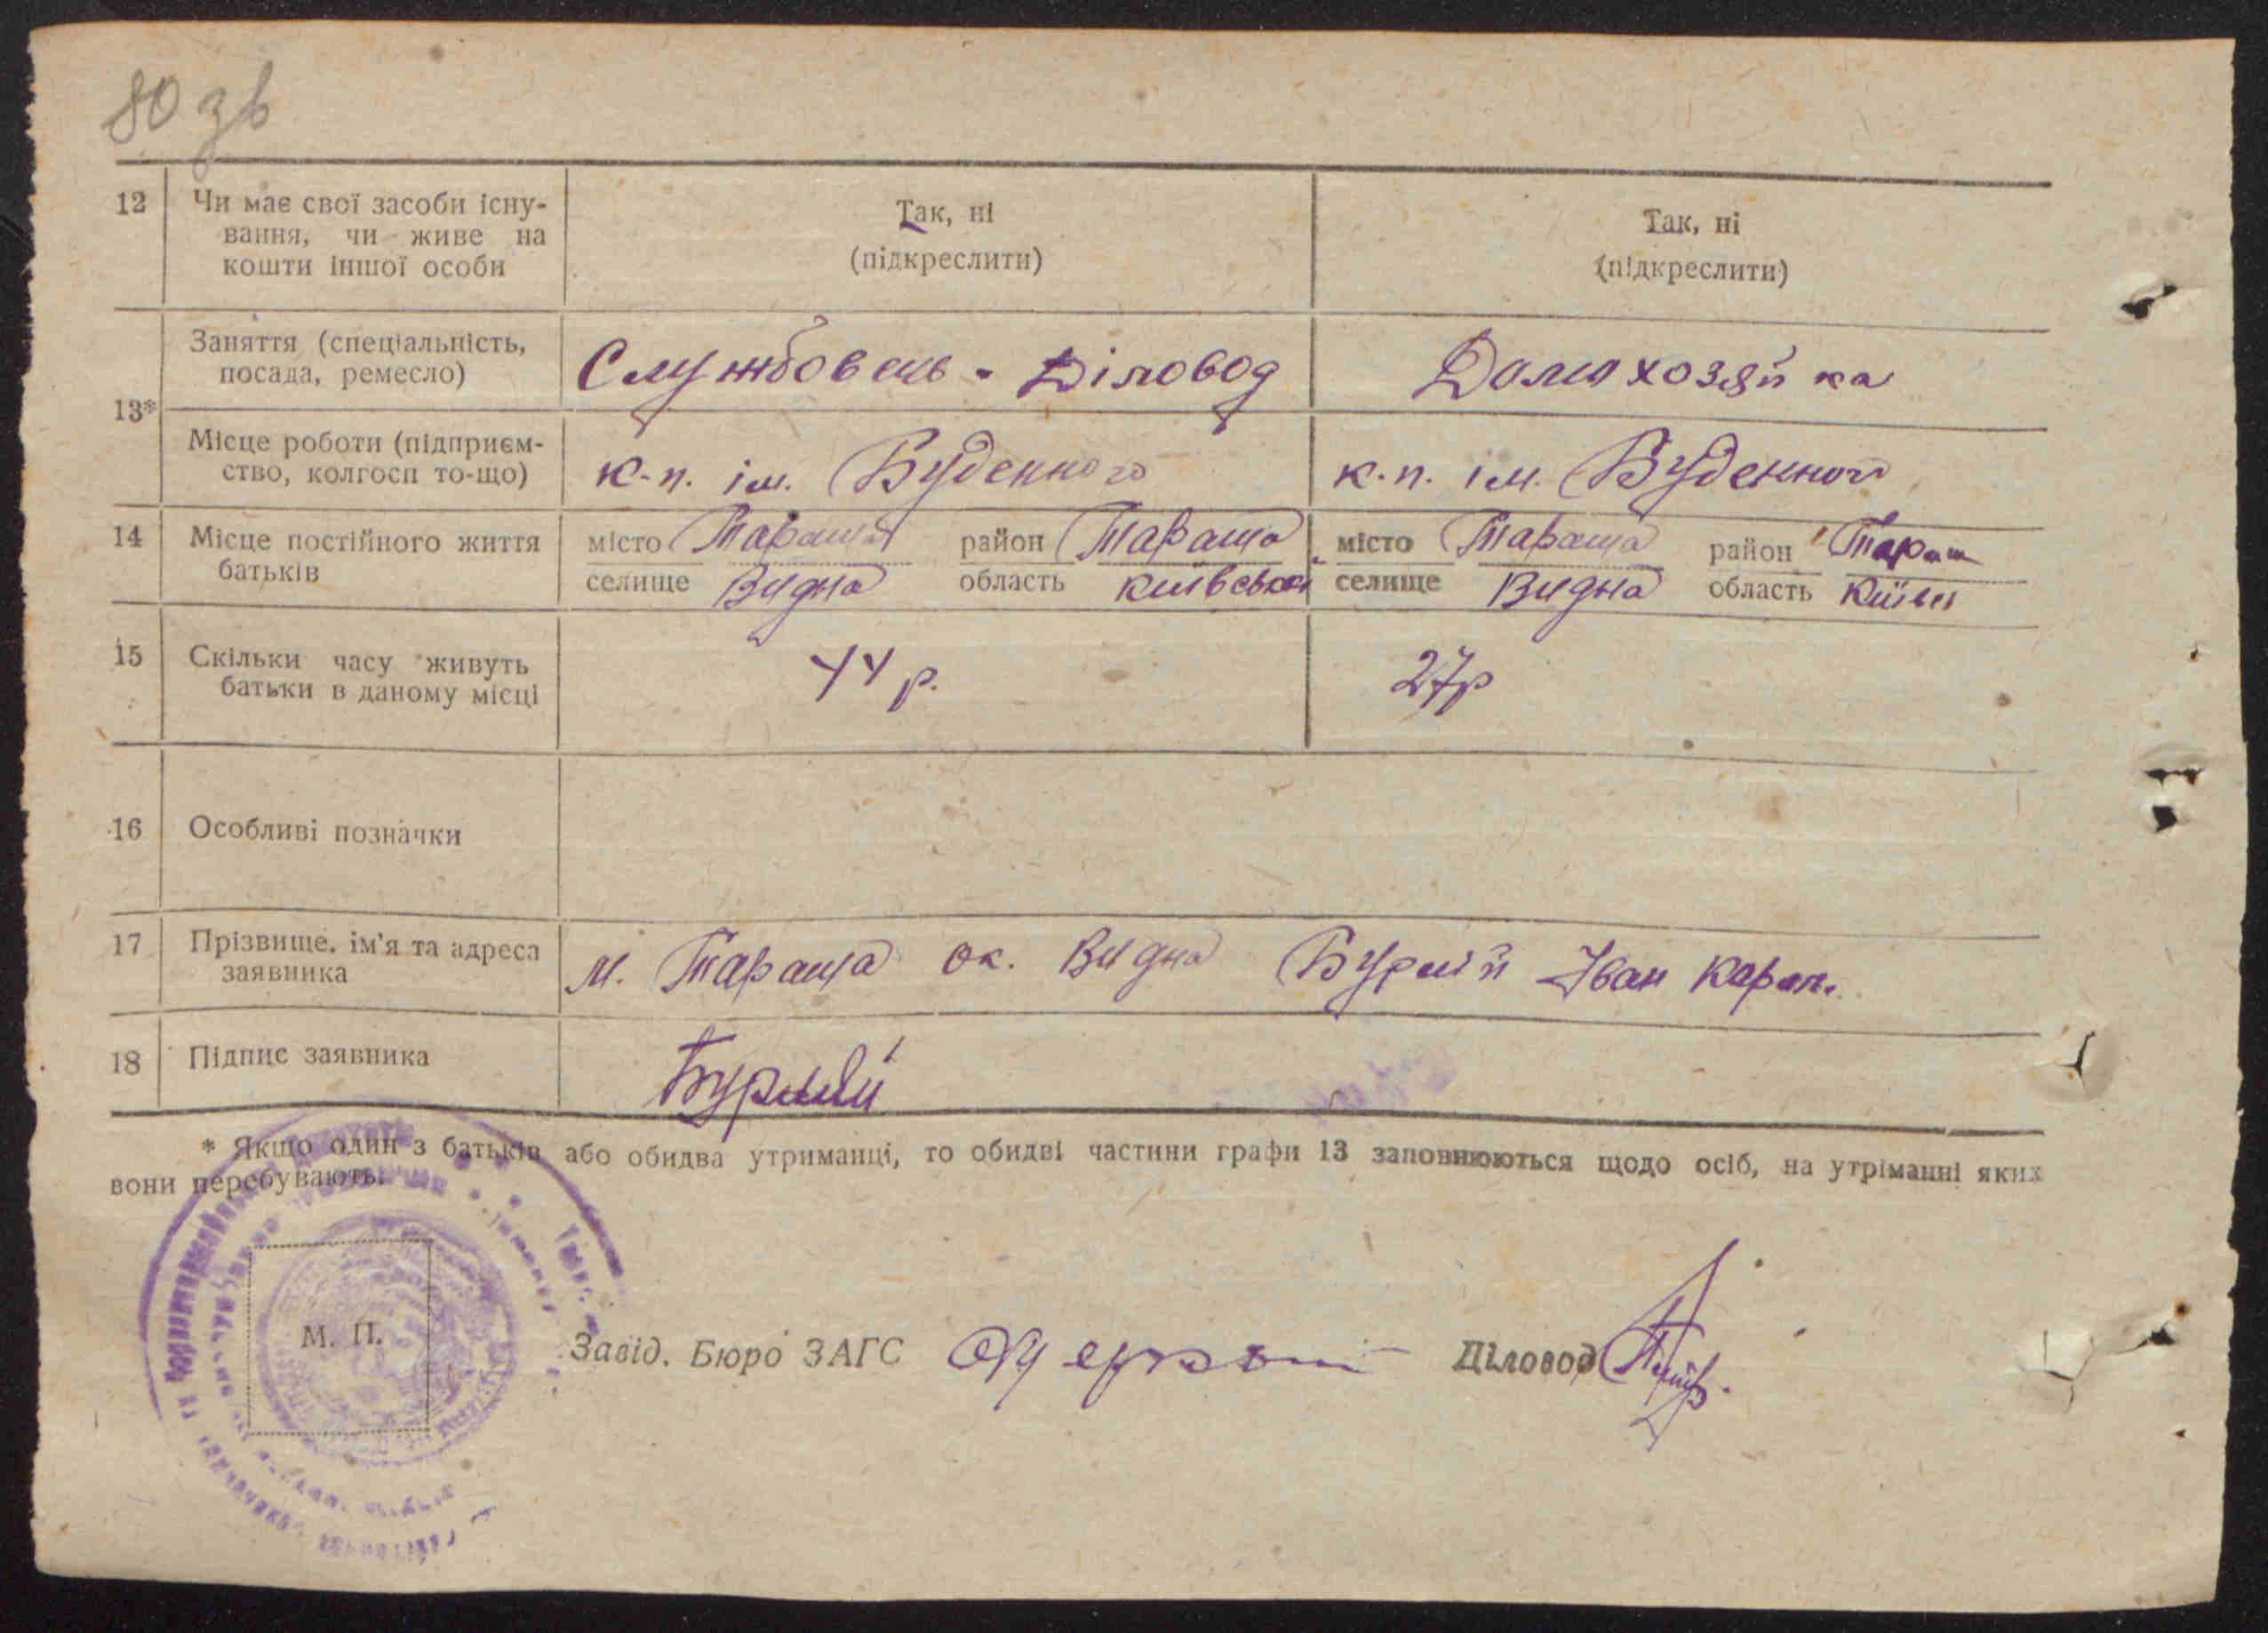 80 зв
12 Чи має свої засоби існу-
вання, чи живе на
кошти іншої особи
Так, ні
(підкреслити)
Так, ні
(підкреслити)
13*
Заняття (спеціальність,
посада, ремесло)
Службовець - Діловод
Домохозяйка
Місце роботи (підприєм-
ство, колгосп то-що)
к-п. ім. Буденного
к.п. ім. Буденного
14 Місце постійного життя
батьків
місто Тараща район Тараща
селище Видна область Київськ
місто Тараща район Таращ
селище Видна область Київ
15 Скільки часу живуть
батьки в даному місці
44 р.
27р
16 Особливі позначки
17 Прізвище, ім'я та адреса
заявника
м. Тараща ок. Видна Бурмій Іван Карп.
18 Підпис заявника
Бурмій
* Якщо один з батьків або обидва утриманці, то обидві частини графи 13 заповнюються щодо осіб, на утріманні яких
вони перебувають.
М. П.
Завід. Бюро ЗАГС
Діловод